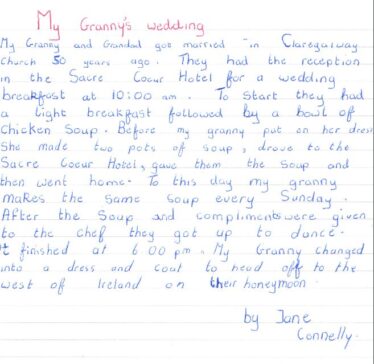 My Granny's wedding
My Granny and Grandad got married in Claregalway
Church 50 years ago. They had the reception
in the Sacre Coeur Hotel for a wedding
breakfast at 10:00 am. To start they had
a light breakfast followed by a bowl of
Chicken Soup. Before my granny put on her dress
She made two pots of soup, drove to the
Sacre Coeur Hotel, gave them the soup and
then went home. To this day my granny
makes the same soup every Sunday.
After the Soup and compliments were given
to the chef they got up to dance.
It finished at 6 00 pm. My Granny changed
into a dress and coat to head off to the
west of Ireland on their honeymoon
by Jane
Connelly.